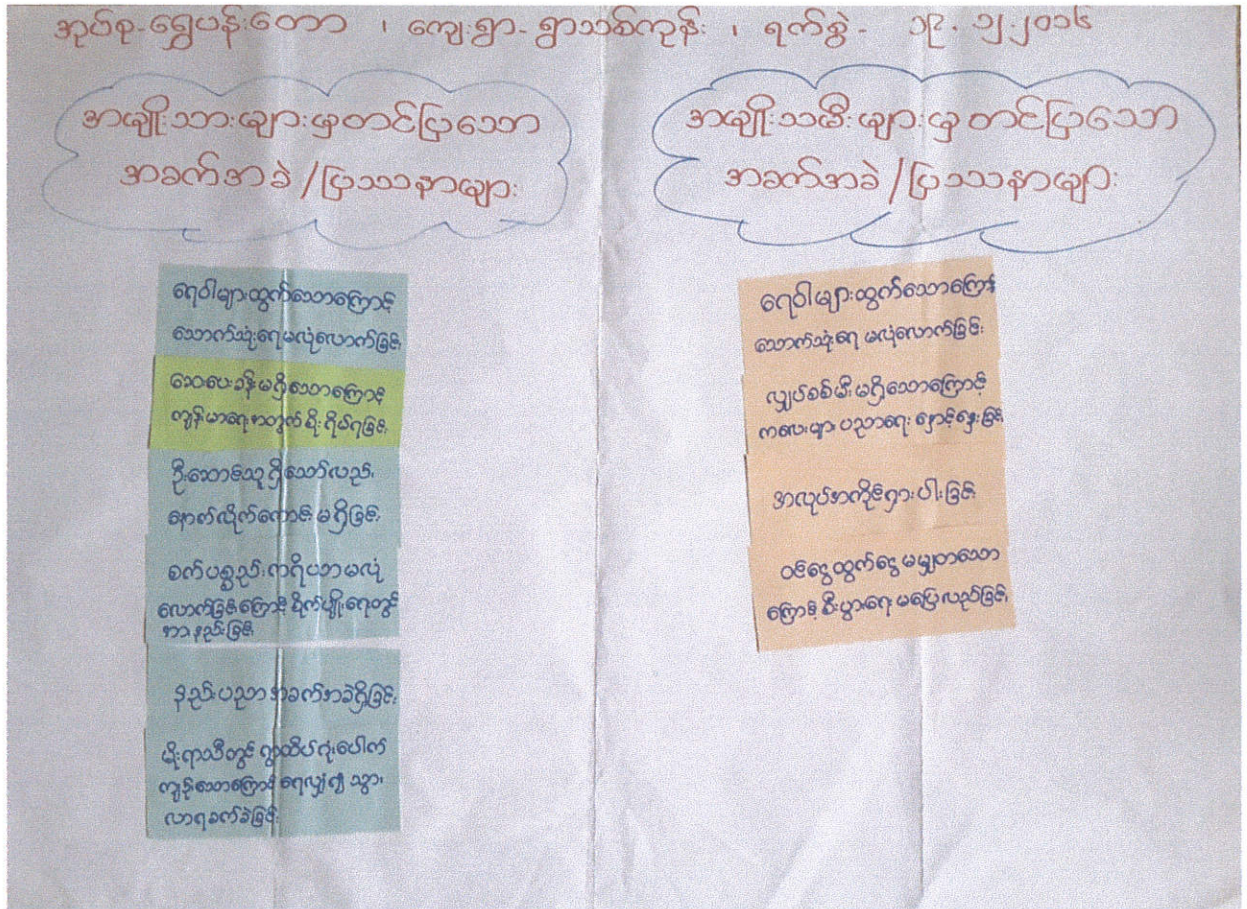 အုပ်စု-ရွှေပန်းတော ၊ ကျေးရွာ-ရွာသစ်ကုန်း ၊ ရက်စွဲ - ၁၉.၁၂.၂၀၁၆
အမျိုးသားများမှတင်ပြသော
အခက်အခဲ/ပြဿနာများ
ရေဝါများထွက်သောကြောင့်
သောက်သုံးရေမလုံလောက်ခြင်း
ဆေးပေးခန်းမရှိသောကြောင့်
ကျန်းမာရေးအတွက်စိုးရိမ်ရခြင်း
ဦးဆောင်သူရှိသော်လည်း
နောက်လိုက်ကောင်းမရှိခြင်း
စက်ပစ္စည်းကိရိယာမလုံ
လောက်ခြင်းကြောင့်စိုက်ပျိုးရေတွင်
အားနည်းခြင်း
နည်းပညာအခက်အခဲရှိခြင်း
မိုးရာသီတွင်ရွာထိပ်ဂုံးပေါက်
ကျွန်းသောကြောင့်ရေလျှံ၍သွား
လာရခက်ခဲခြင်း
အမျိုးသမီးများမှတင်ပြသော
အခက်အခဲ/ပြဿနာများ
ရေဝါများထွက်သောကြောင့်
သောက်သုံးရေ မလုံလောက်ခြင်း
လျှပ်စစ်မီးမရှိသောကြောင့်
ကလေးများပညာရေးနှောင့်နှေးခြင်း
အလုပ်အကိုင်ရှားပါးခြင်း
ဝင်ငွေထွက်ငွေမမျှတသော
ကြောင့်စီးပွားရေးမပြေလည်ခြင်း